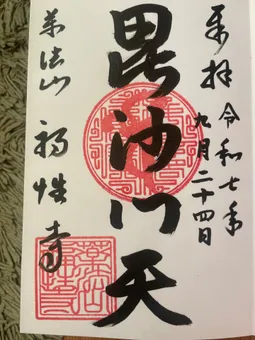 奉拝
令和七年
九月二十四日
毘沙門天
薬法山
福性寺